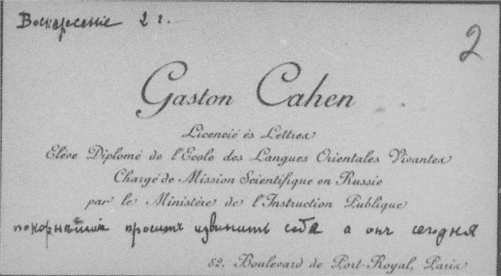 Воскресенiе 2 г.
2
Gaston Cahen
Licencié ès Lettres
Elève Diplomé de l'Ecole des Langues Orientales Vivantes
Chargé de Mission Scientifique en Russie
par le Ministère de l'Instruction Publique
покорнѣйше просить извинить себя а онъ сегодня
82, Boulevard de Port-Royal, Paris